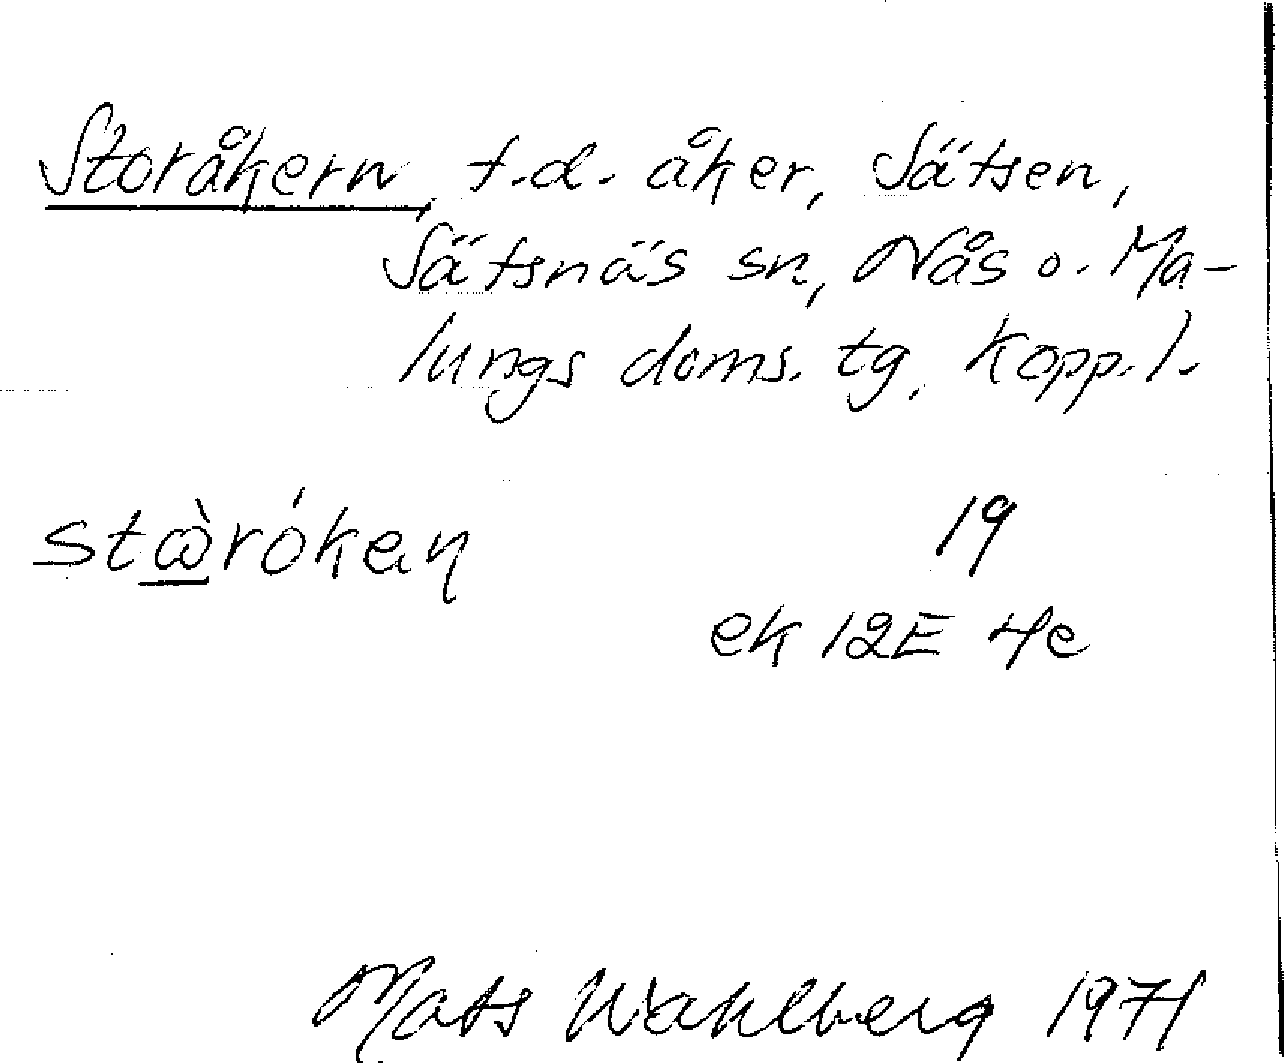 Storåkern, f.d. åker, Sätsen,
Sätsnäs sn, Nås o. Ma-
lungs doms. tg, Kopp. l.
19
ek 12E 4e
Mats Wahlberg 1971